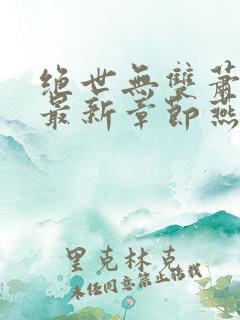 絕世無雙蕭
最新章節燕
里克林克
未经同意禁止转载